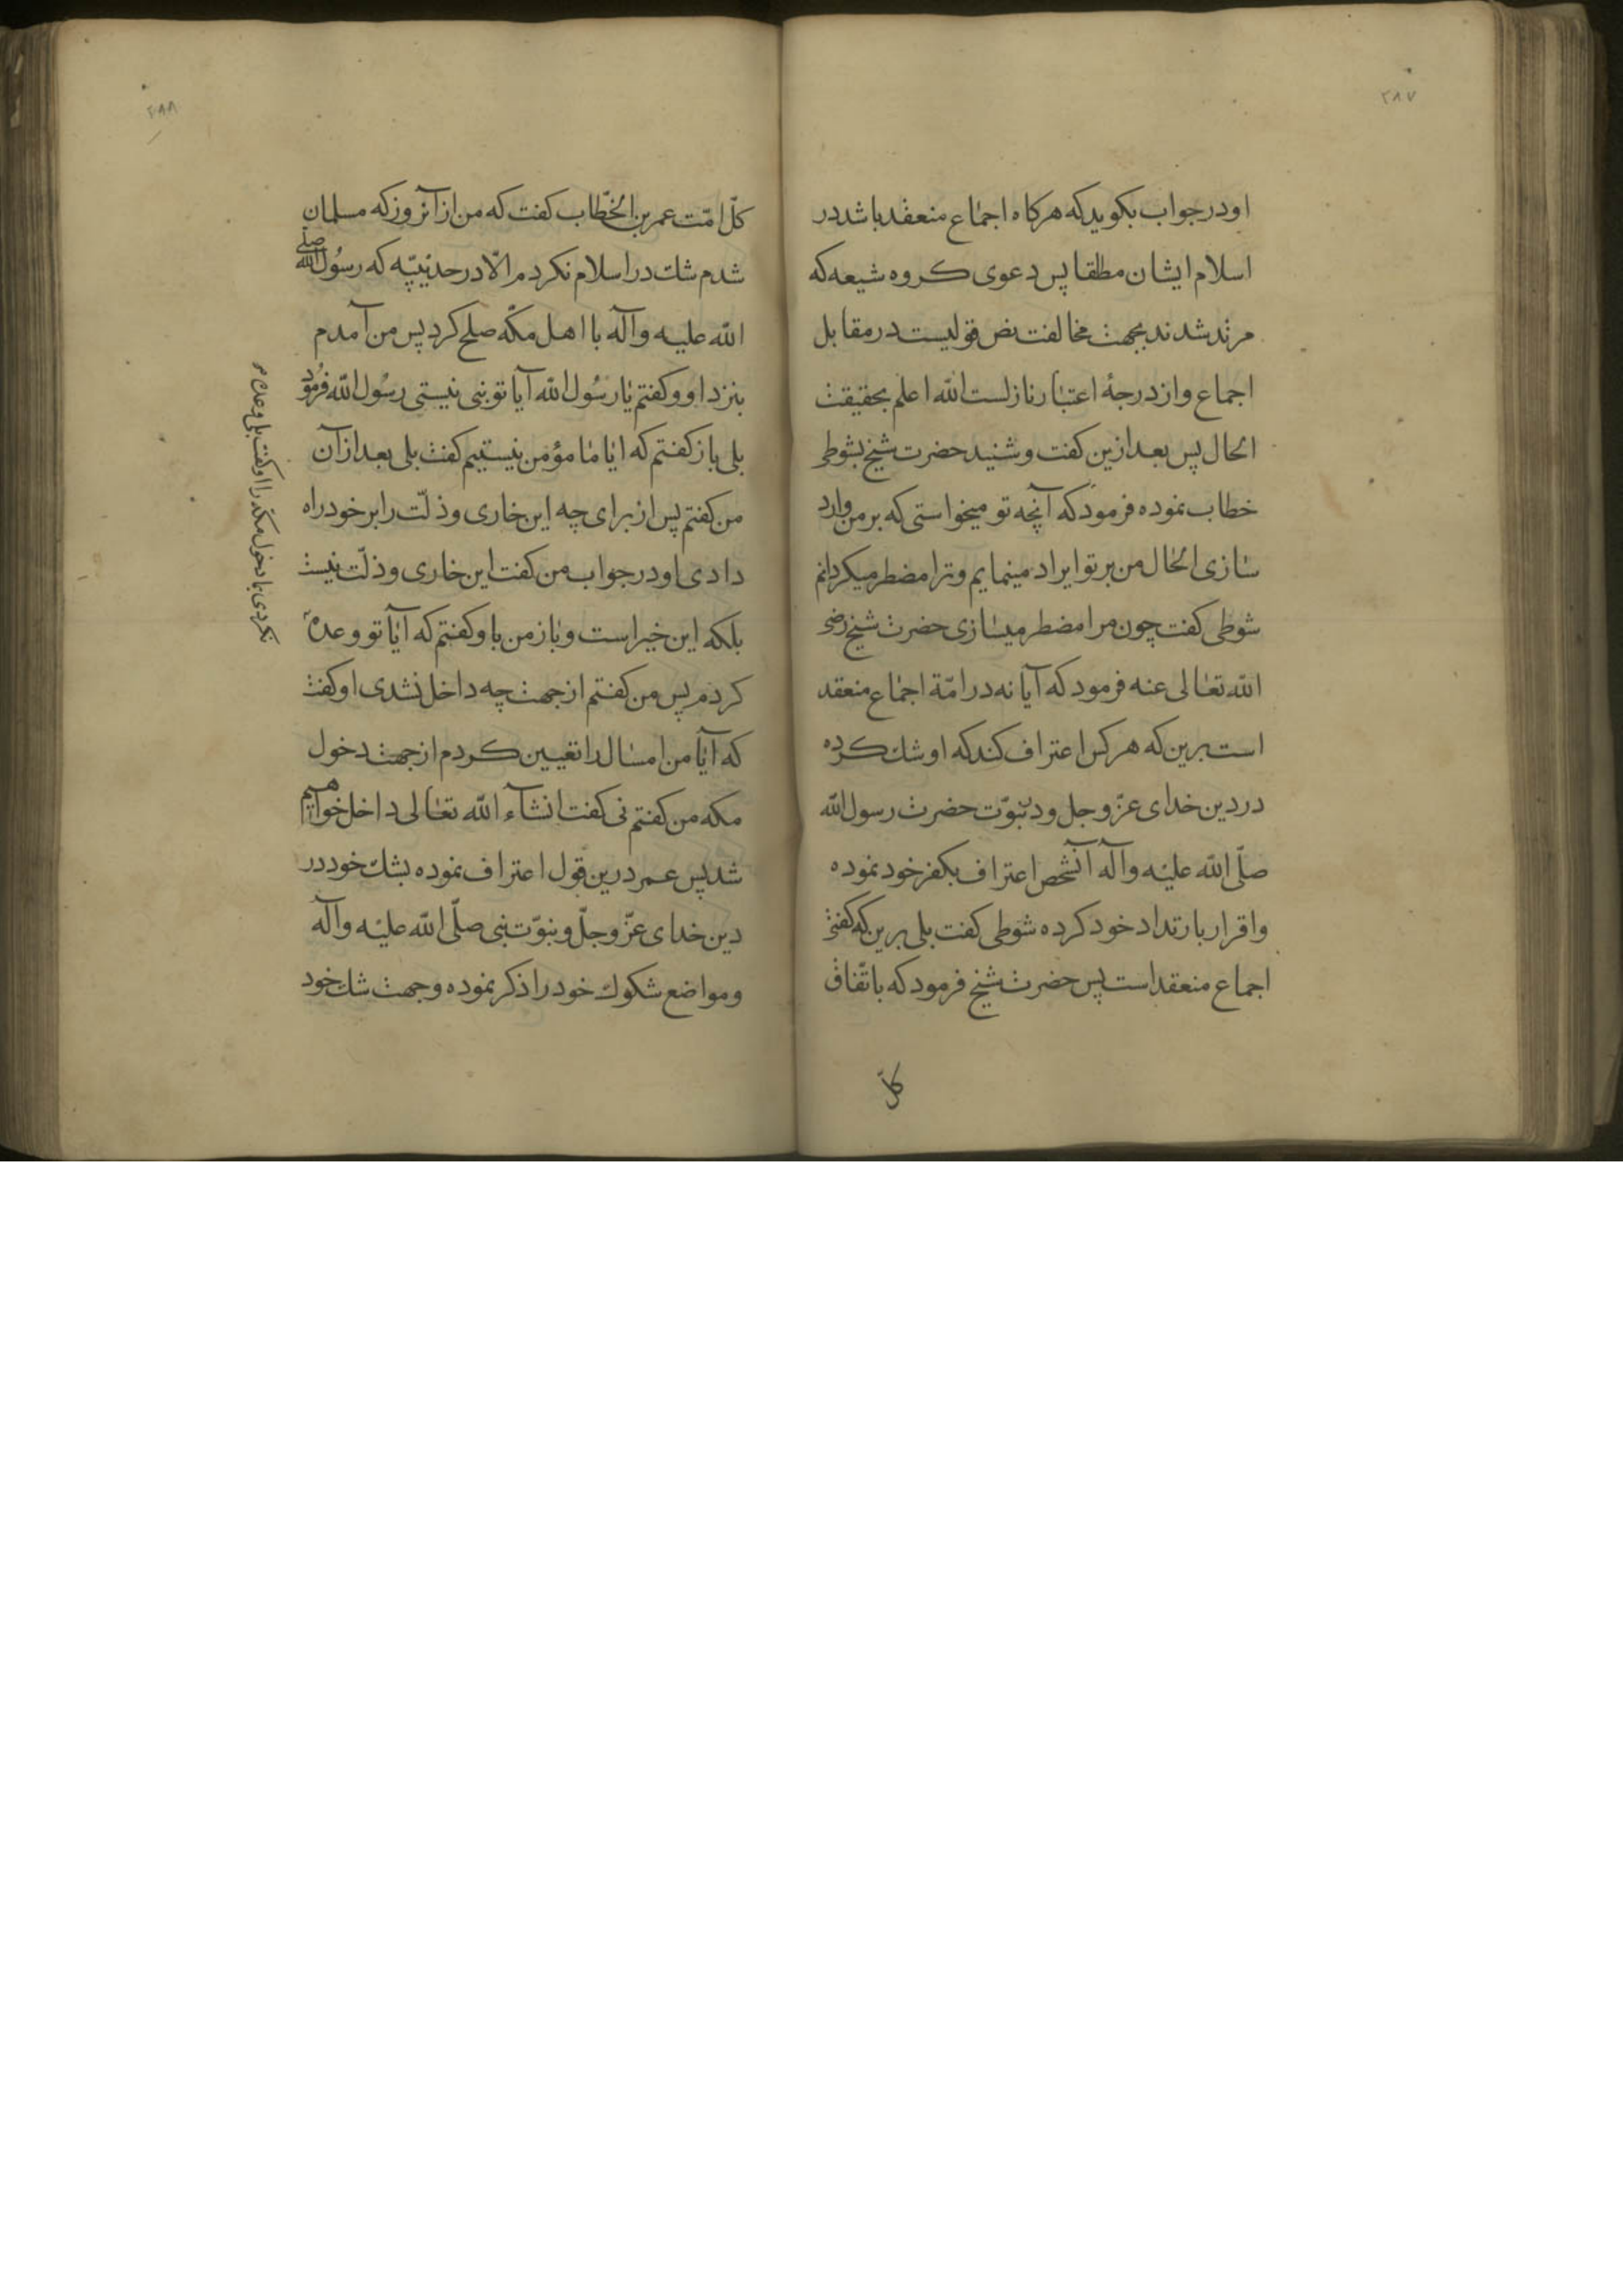 ۲۸۷
او در جواب بکوید که هرکاه اجماع منعقد باشد در
اسلام ایشان مطلقا پس دعوی کروه شیعه که
مرتد شدند بجهت مخالفت نص قولیست در مقابل
اجماع و از درجهٔ اعتبار نازلست الله اعلم بحقیقت
الحال پس بعد ازین کفت و شنید حضرت شیخ بشوطی
خطاب نموده فرمود که آنچه تو میخواستی که بر من وارد
سازی الحال من بر تو ایراد مینمایم و ترا مضطر میکردانم
شوطی کفت چون مرا مضطر میسازی حضرت شیخ رضی
الله تعالی عنه فرمود که آیا نه در امّة اجماع منعقد
است برین که هر کس اعتراف کند که او شك کرده
در دین خدای عزّ و جل و در نبوّت حضرت رسول الله
صلّی الله علیه وآله آنشخص اعتراف بکفر خود نموده
و اقرار بارتداد خود کرده شوطی کفت بلی برین که کفتی
اجماع منعقد است پس حضرت شیخ فرمود که باتّفاق
کلّ
۲۸۸
کلّ امّت عمر بن الخطّاب کفت که من از آنروز که مسلمان
شدم شك در اسلام نکردم الّا در حدیبیّه که رسُول الله صلّی
الله علیه وآله با اهل مکّه صلح کرد پس من آمدم
بنزد او و کفتم یا رسُول الله آیا تو نبی نیستی رسُول الله فرمُود
بلی باز کفتم که ایا ما مؤمن نیستیم کفت بلی بعد از آن
من کفتم پس از برای چه این خاری و ذلّت را بر خود راه
دادی او در جواب من کفت این خاری و ذلّت نیست
بلکه این خیر است و باز من باو کفتم که آیا تو وعده
نکردی بما دخول مکه را او کفت بلی وعده
کردم پس من کفتم از جهت چه داخل نشدی او کفت
که آیا من امسال را تعیین کردم از جهت دخول
مکه من کفتم نی کفت انشآء الله تعالی داخل خواهیم
شد پس عمر درین قول اعتراف نموده بشك خود در
دین خدای عزّ و جلّ و نبوّت نبی صلّی الله علیه وآله
و مواضع شکوك خود را ذکر نموده و جهت شك خود